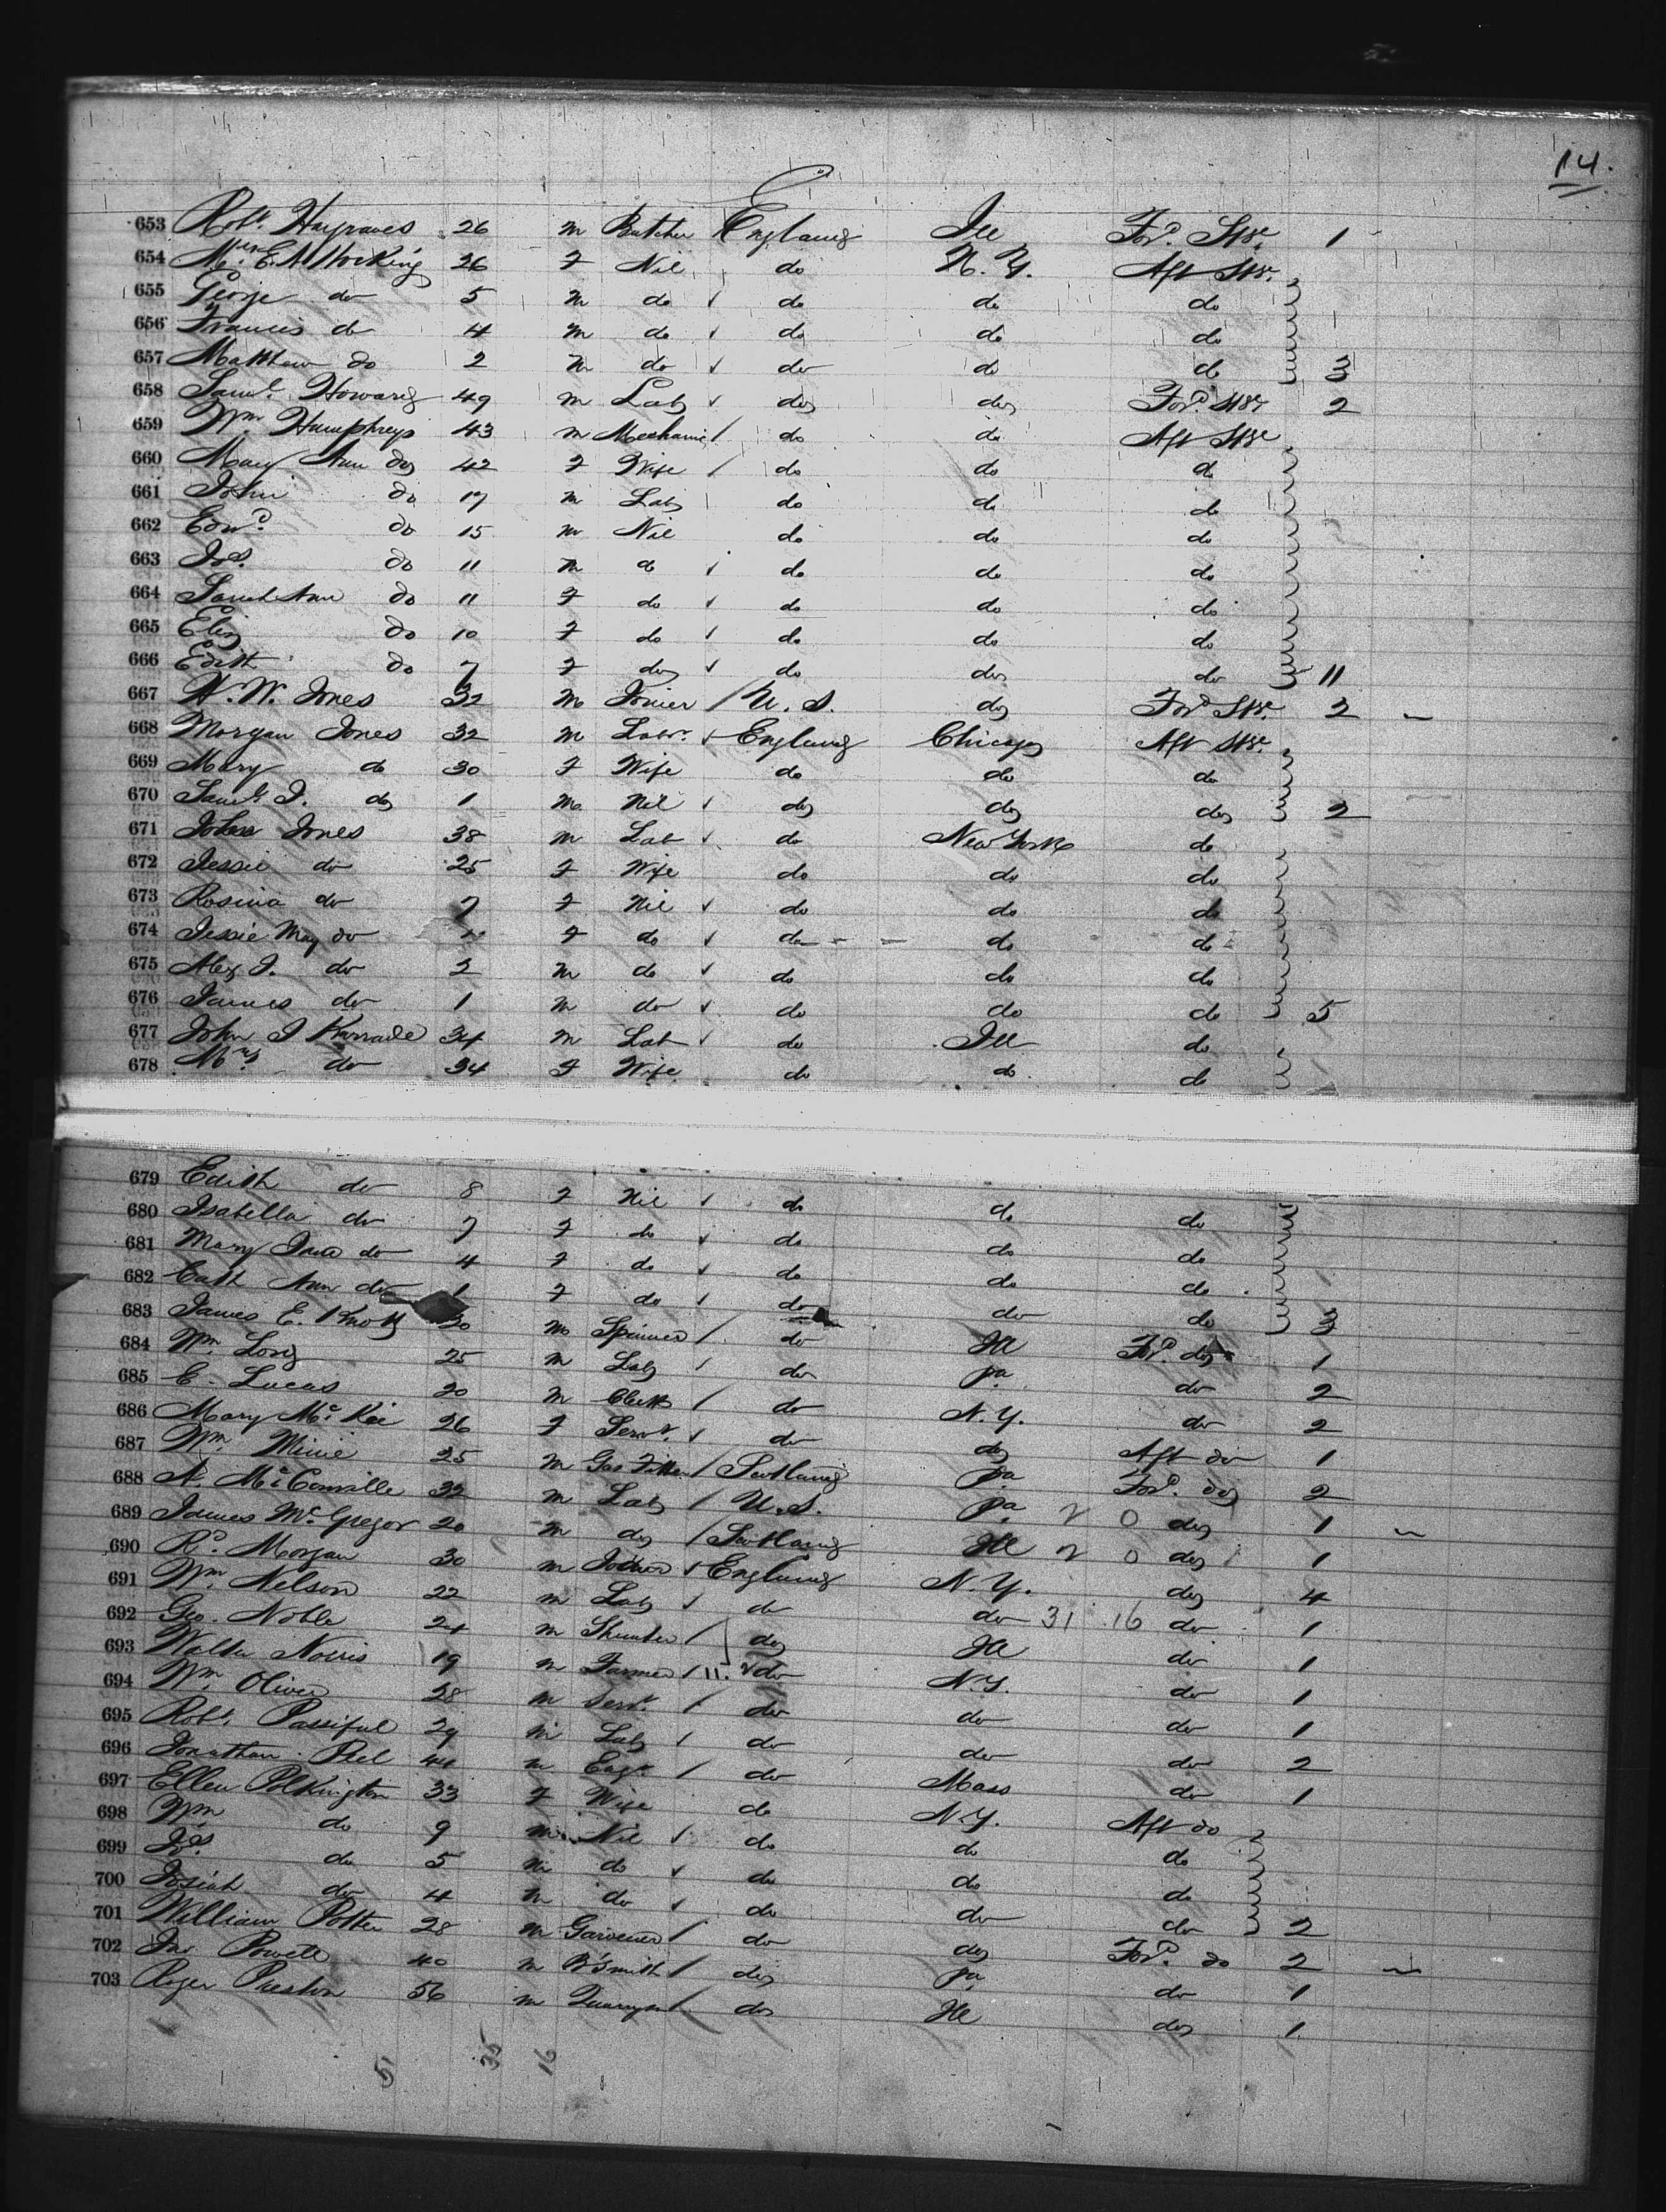 14.
653 Robt. Hargraves 26 m Butcher England Ill Ford. Stge 1
654 Mrs. E A Hocking 26 f Nil do N.Y. Aft Stge
655 George do 5 m do do do do
656 Francis do 4 m do do do do
657 Matthew do 2 m do do do do 3
658 Saml. Howard 49 m Lab do do Ford. Stge 2
659 Wm. Humphreys 43 m Mechanic do do Aft Stge
660 Mary Ann do 42 f Wife do do do
661 John do 17 m Lab do do do
662 Edwd. do 15 m Nil do do do
663 Jos. do 11 m do do do do
664 Sarah Ann do 11 f do do do do
665 Eliz do 10 f do do do do
666 Edith do 7 f do do do do 11
667 W. Jones 32 m Joiner U.S. do Ford Stge. 2
668 Morgan Jones 32 m Labr. England Chicago Aft Stge
669 Mary do 30 f Wife do do do
670 Saml. J. do 1 m Nil do do do 2
671 John Jones 38 m Lab do New York do
672 Jessie do 25 f Wife do do do
673 Rosina do 7 f Nil do do do
674 Jessie May do f do do do do
675 Alex J. do 2 m do do do do
676 James do 1 m do do do do 5
677 John J 34 m Lab do Ill do
678 Mrs do 34 f Wife do do do
679 Edith do 8 f Nil do do do
680 Isabella do 7 f do do do do
681 Mary Jane do 4 f do do do do
682 Cath Ann do 1 f do do do do 3
683 James E. Knott 30 m Spinner do Ill Ford. do 1
684 Wm. Long 25 m Lab do Pa. do 2
685 E. Lucas 20 m Clerk do N.Y. do 2
686 Mary McKee 26 f Servt. do do Aft do 1
687 Wm. 25 m Gas Fitter Scotland Pa Ford. do 2
688 A. McConville 32 m Lab U.S. Pa 2 0 do 1
689 James McGregor 20 m do Scotland Ill 2 0 do 1
690 Rd. Morgan 30 m England N.Y. do 4
691 Wm. Nelson 22 m Lab do do 31 16 do 1
692 Geo. Noble 24 m do Ill do 1
693 Walter Norris 19 m Farmer 11. do N.Y. do 1
694 Wm. Oliver 28 m Servt. do do do 1
695 Robt. Passiful 29 m Lab do do do 2
696 Jonathan Peel 44 m Engr. do Mass do 1
697 Ellen Pilkington 33 f Wife do N.Y. Aft do
698 Wm do 9 m Nil do do do
699 Jos. do 5 m do do do do
700 Josiah do 4 m do do do do 2
701 William Potter 28 m Gardener do do Ford. do 2
702 Jno Powell 40 m B'Smith do Pa do 1
703 Roger Preston 56 m Quarryman do Ill do 1
51 35 16